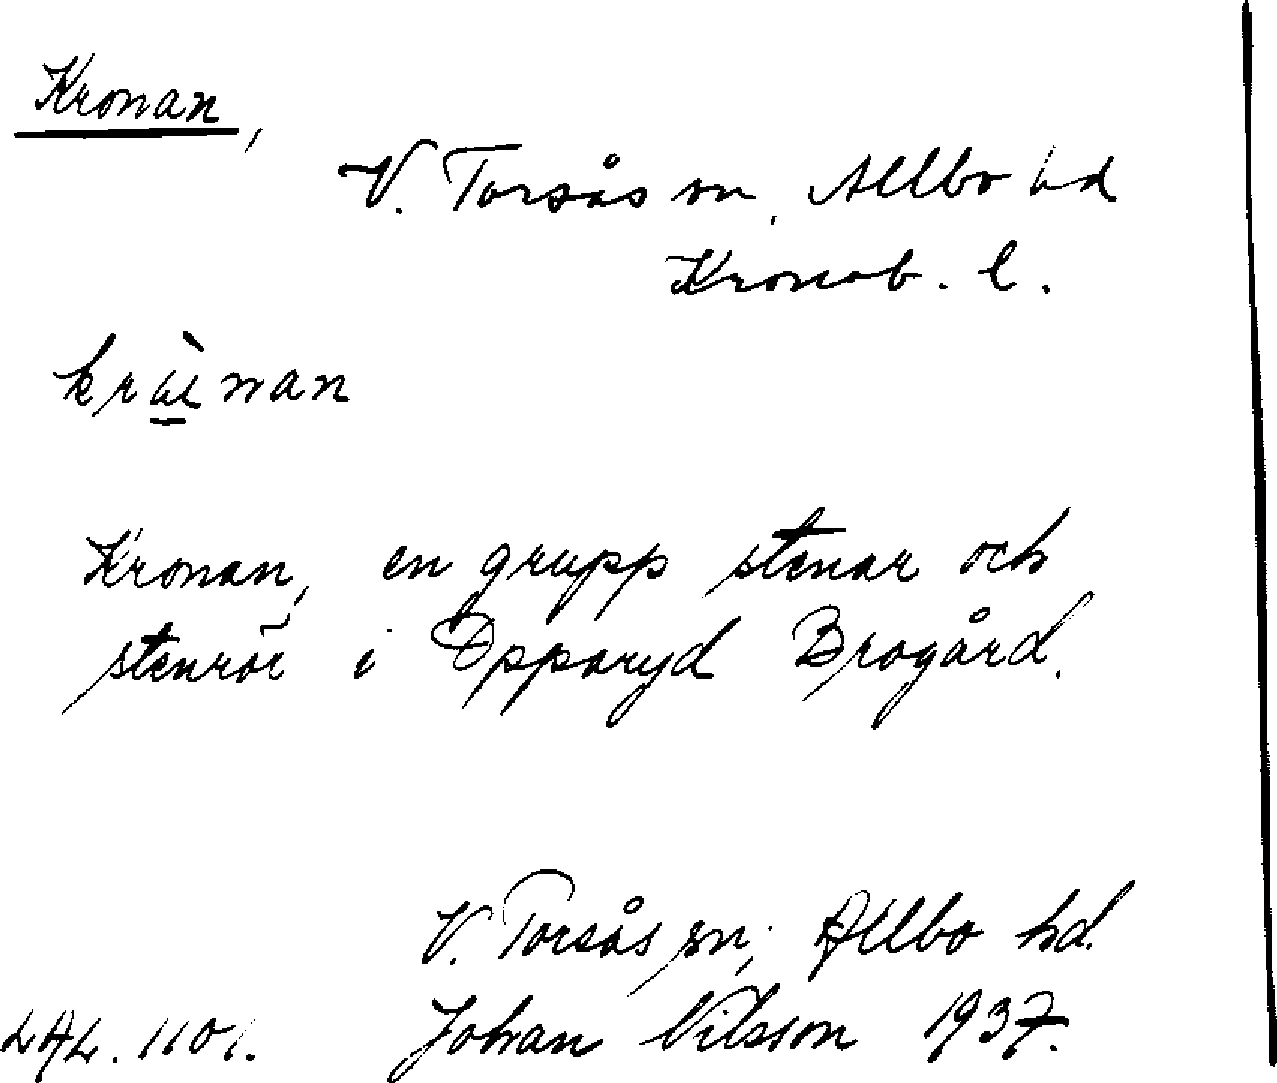 Kronan,
V. Torsås sn, Allbo hd
Kronob. l.
Kronan, en grupp stenar och
stenrör i Opparyd Brogård.
V. Torsås sn, Allbo hd.
LAL. 1101. Johan Nilsson 1937.